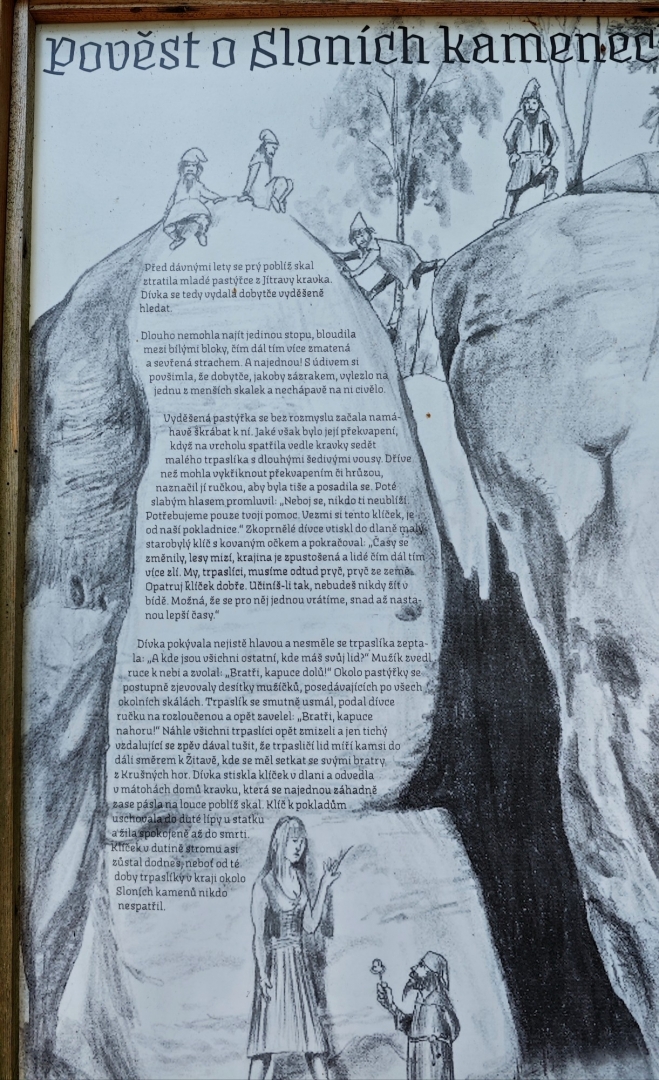 Pověst o Sloních kamenec
Před dávnými lety se prý poblíž skal
ztratila mladé pastýřce z Jítravy kravka.
Dívka se tedy vydala dobytče vyděšeně
hledat.
Dlouho nemohla najít jedinou stopu, bloudila
mezi bílými bloky, čím dál tím více zmatená
a sevřená strachem. A najednou! S údivem si
povšimla, že dobytče, jakoby zázrakem, vylezlo na
jednu z menších skalek a nechápavě na ni civělo.
Vyděšená pastýřka se bez rozmyslu začala namá-
havě škrábat k ní. Jaké však bylo její překvapení,
když na vrcholu spatřila vedle kravky sedět
malého trpaslíka s dlouhými šedivými vousy. Dříve
než mohla vykřiknout překvapením či hrůzou,
naznačil jí ručkou, aby byla tiše a posadila se. Poté
slabým hlasem promluvil: „Neboj se, nikdo ti neublíží.
Potřebujeme pouze tvoji pomoc. Vezmi si tento klíček, je
od naší pokladnice.“ Zkoprnělé dívce vtiskl do dlaně malý
starobylý klíč s kovaným očkem a pokračoval: „Časy se
změnily, lesy mizí, krajina je zpustošená a lidé čím dál tím
více zlí. My, trpaslíci, musíme odtud pryč, pryč ze země.
Opatruj klíček dobře. Učiníš-li tak, nebudeš nikdy žít v
bídě. Možná, že se pro něj jednou vrátíme, snad až nasta-
nou lepší časy.“
Dívka pokývala nejistě hlavou a nesměle se trpaslíka zepta-
la: „A kde jsou všichni ostatní, kde máš svůj lid?“ Mužík zvedl
ruce k nebi a zvolal: „Bratři, kapuce dolů!“ Okolo pastýřky se
postupně zjevovaly desítky mužíčků, posedávajících po všech
okolních skálách. Trpaslík se smutně usmál, podal dívce
ručku na rozloučenou a opět zavelel: „Bratři, kapuce
nahoru!“ Náhle všichni trpaslíci opět zmizeli a jen tichý
vzdalující se zpěv dával tušit, že trpasličí lid míří kamsi do
dáli směrem k Žitavě, kde se měl setkat se svými bratry
z Krušných hor. Dívka stiskla klíček v dlani a odvedla
v mátohách domů kravku, která se najednou záhadně
zase pásla na louce poblíž skal. Klíč k pokladům
uschovala do duté lípy u statku
a žila spokojeně až do smrti.
Klíček v dutině stromu asi
zůstal dodnes, neboť od té
doby trpaslíky v kraji okolo
Sloních kamenů nikdo
nespatřil.